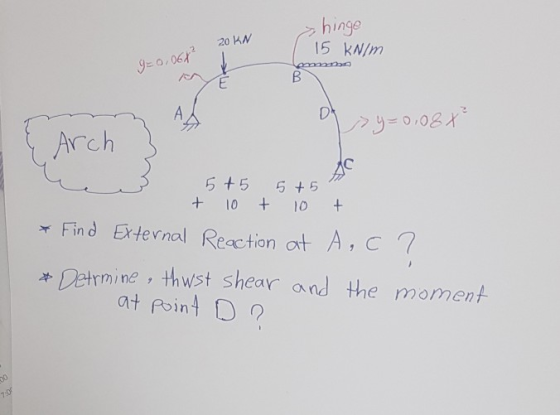 hinge
20 KN
15 KN/m
y=0.06x²
E
B
A
D
y=0.08x²
Arch
C
5 + 5 5 + 5
+ 10 + 10 +
* Find External Reaction at A, C ?
* Detrmine, thwst shear and the moment
at point D ?